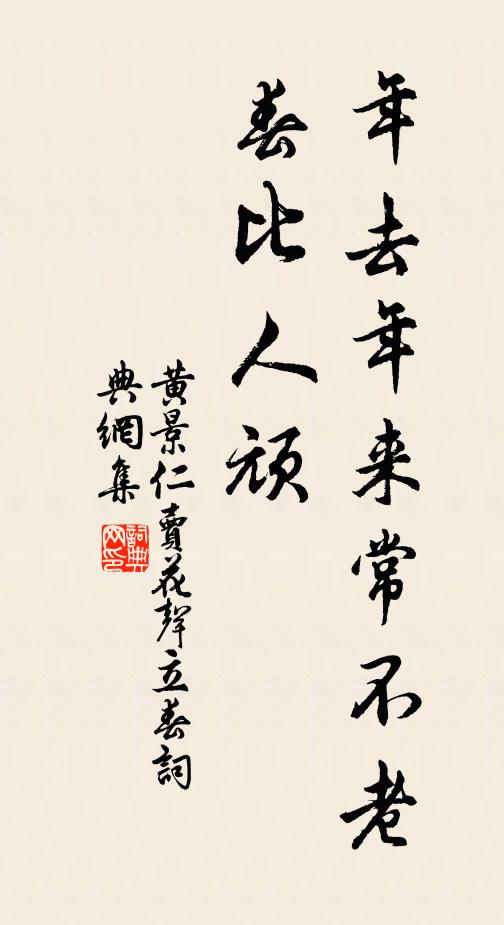 年去年来常不老
春比人頑
黄景仁賣花聲立春詞
典網集
詞典網印